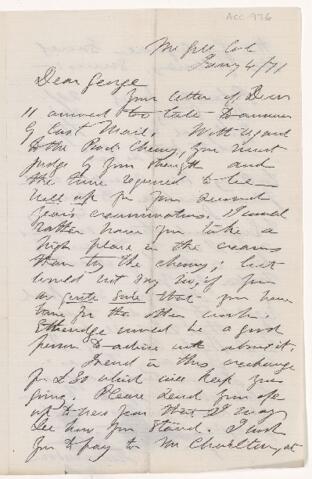 ACC 976
McGill Col
Jany 4/71
Dear George
Your letter of Decr
11 arrived too late to answer
by last Mail. With regard
to the Pract Chemy, you must
judge by your strength and
the time required to be
well up for your second
year's examinations. I would
rather have you take a
high place in the exams
than try the chemy; but
would not say no, if you
are quite sure that you have
time for the other work.
Etheridge would be a good
person to advise with about it.
I send in this exchange
for £30 which will keep you
going. Please send
up to new year that I may
see how you stand. I wish
you to pay to Mr Charlton, at